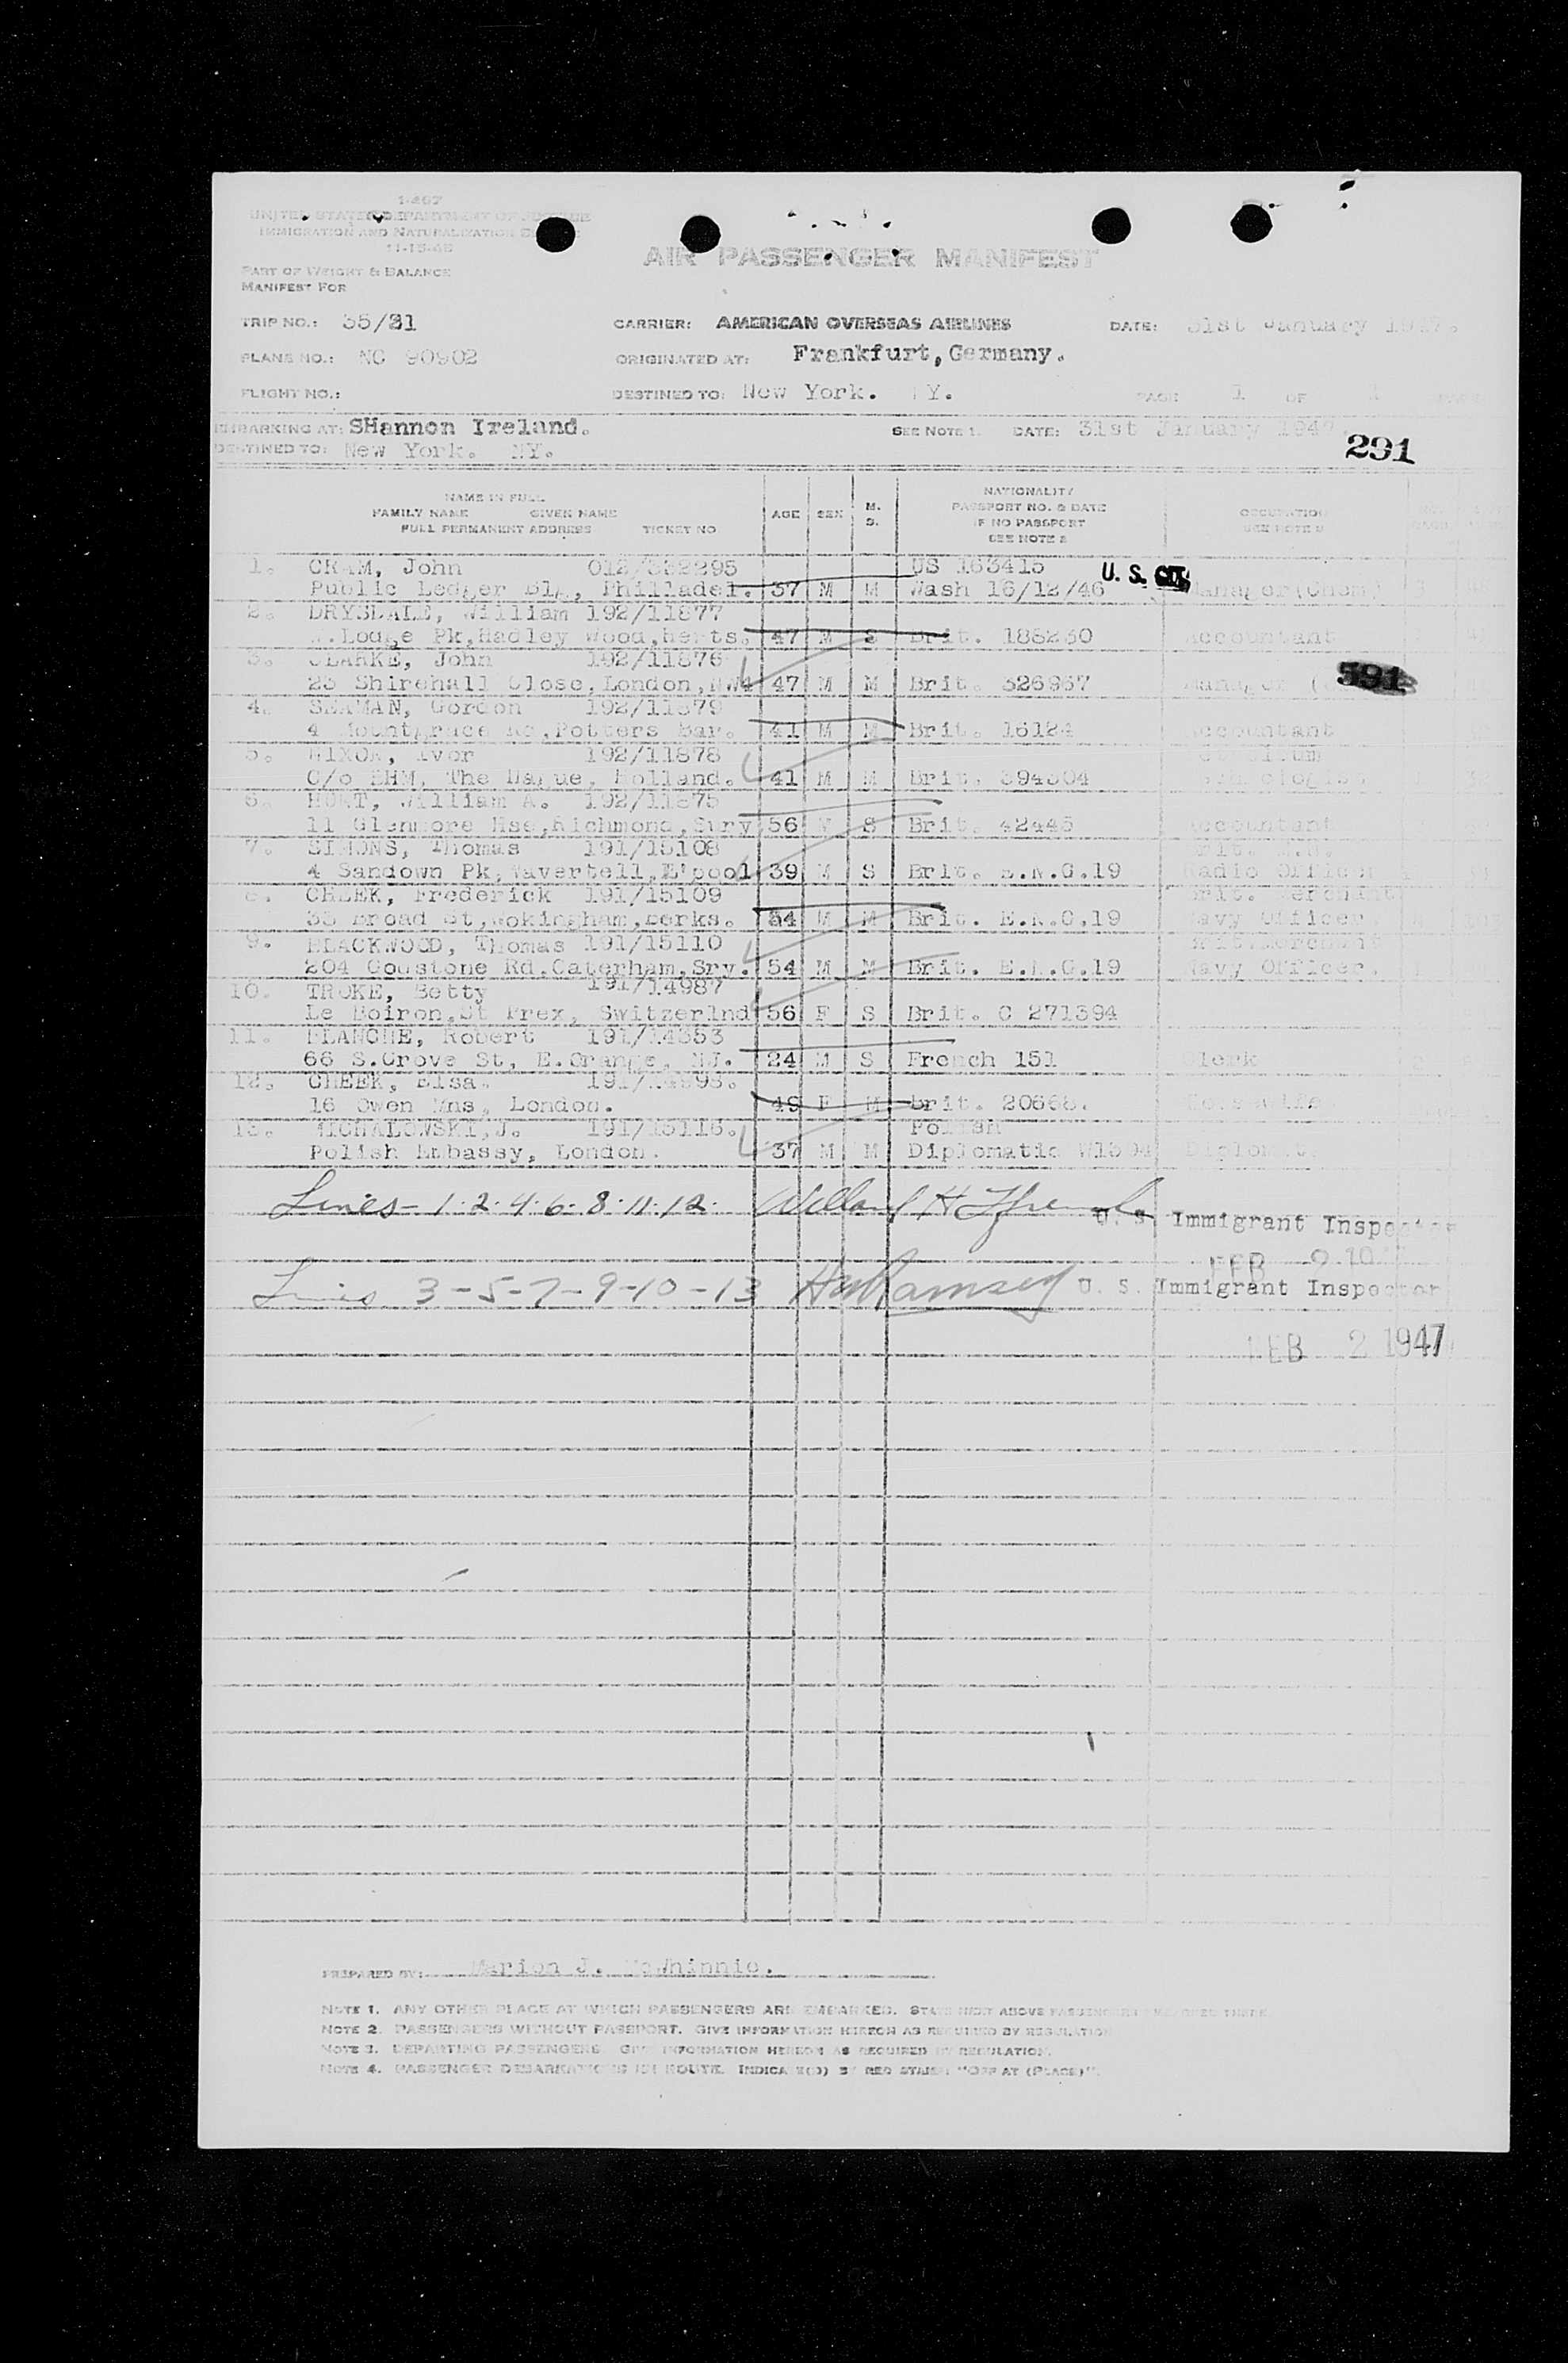 I-467
UNITED STATES DEPARTMENT OF JUSTICE
IMMIGRATION AND NATURALIZATION
11-15-45
PART OF WEIGHT & BALANCE
MANIFEST FOR
AIR PASSENGER MANIFEST
TRIP NO.: 35/31 CARRIER: AMERICAN OVERSEAS AIRLINES DATE: 31st January 1947.
PLANE NO.: NC 90902 ORIGINATED AT: Frankfurt, Germany.
FLIGHT NO.: DESTINED TO: New York. NY. PAGE 1 OF 1
EMBARKING AT: SHannon Ireland. SEE NOTE 1. DATE: 31st January 1947.
DESTINED TO: New York. NY.
291
NAME IN FULL
FAMILY NAME GIVEN NAME
FULL PERMANENT ADDRESS TICKET NO AGE SEX M. S. NATIONALITY PASSPORT NO. & DATE IF NO PASSPORT SEE NOTE 2 OCCUPATION SEE NOTE
1. CRAM, John 012/332295 US 163415 U. S. CIT.
Public Ledger Blg, Philladel. 37 M M Wash 16/12/46 Manager(Chem)
2. DRYSDALE, William 192/11877
W.Lodge Pk,Hadley Wood,herts. 47 M S Brit. 188230 Accountant
3. CLARKE, John 192/11876
25 Shirehall Close,London,NW4 47 M M Brit. 326937 Manager 591
4. SEAMAN, Gordon 192/11879
4 Mountgrace Rd,Potters Bar. 41 M M Brit. 16124 Accountant
5. NIXON, Ivor 192/11878
C/o BHM, The Hague, Holland. 41 M M Brit. 394304
6. HUNT, William A. 192/11875
11 Glenmore Hse,Richmond,Sury 56 M S Brit. 42445 Accountant
7. SIMONS, Thomas 191/15108
4 Sandown Pk,Wavertell,L'pool 39 M S Brit. E.N.G.19 Radio Officer
8. CHEEK, Frederick 191/15109 Brit. Merchant
35 Broad St,Wokingham,Berks. 54 M M Brit. E.N.G.19 Navy Officer
9. BLACKWOOD, Thomas 191/15110 Brit.Merchant
204 Godstone Rd.Caterham,Sry. 54 M M Brit. E.N.G.19 Navy Officer.
10. TROKE, Betty 191/14987
Le Boiron,St Prex, Switzerlnd 56 F S Brit. C 271394
11. BLANCHE, Robert 191/14353
66 S.Grove St, E.Orange, NJ. 24 M S French 151 Clerk
12. CHEEK, Elsa. 191/14898.
16 Owen Mns, London. 49 F M Brit. 20668. Housewife
13. MICHALOWSKI,J. 191/15116. Polish
Polish Embassy, London. 37 M M Diplomatic Diplomat.
Lines - 1·2·4·6·8·11·12. U. S. Immigrant Inspector
FEB 2 1947
Lines 3-5-7-9-10-13 HWRamsey U. S. Immigrant Inspector
FEB 2 1947
PREPARED BY: Marion J. McWhinnie.
NOTE 1. ANY OTHER PLACE AT WHICH PASSENGERS ARE EMBARKED.
NOTE 2. PASSENGERS WITHOUT PASSPORT. GIVE INFORMATION HEREON AS REQUIRED BY REGULATION
NOTE 3. DEPARTING PASSENGERS. GIVE INFORMATION HEREON AS REQUIRED BY REGULATION.
NOTE 4. PASSENGER DEBARKATIONS EN ROUTE. INDICATE(D) BY RED STAMP "OFF AT (PLACE)".